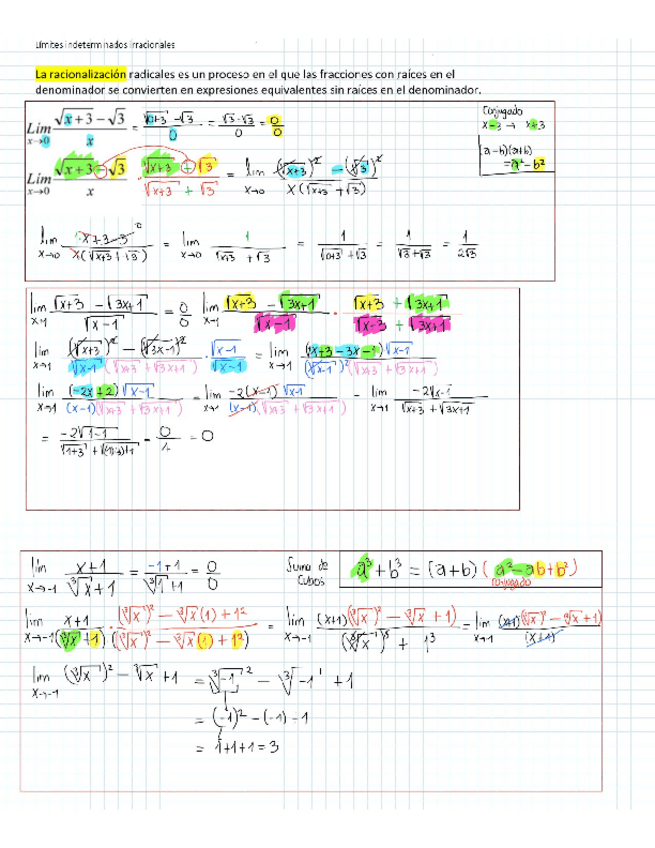 Límites indeterminados irracionales
La racionalización radicales es un proceso en el que las fracciones con raíces en el
denominador se convierten en expresiones equivalentes sin raíces en el denominador.
Lim x→0 (√(x+3) − √3)/x = (√(0+3) − √3)/0 = (√3 − √3)/0 = 0/0
Conjugado
x−3 → x+3
(a−b)(a+b)
= a² − b²
Lim x→0 (√(x+3) − √3)/x · (√(x+3) + √3)/(√(x+3) + √3) = lim x→0 ((√(x+3))² − (√3)²)/(x(√(x+3) + √3))
lim x→0 (x+3−3)/(x(√(x+3) + √3)) = lim x→0 1/(√(x+3) + √3) = 1/(√(0+3) + √3) = 1/(√3+√3) = 1/(2√3)
lim x→1 (√(x+3) − √(3x+1))/√(x−1) = 0/0 lim x→1 (√(x+3) − √(3x+1))/√(x−1) · (√(x+3) + √(3x+1))/(√(x−3) + √(3x+1))
lim x→1 ((√(x+3))² − (√(3x−1))²)/(√(x−1)(√(x+3) + √(3x+1))) · √(x−1)/√(x−1) = lim x→1 ((x+3−3x−1)√(x−1))/((√(x−1))²(√(x+3) + √(3x+1)))
lim x→1 ((−2x+2)√(x−1))/((x−1)(√(x+3) + √(3x+1))) = lim x→1 (−2(x−1)√(x−1))/((x−1)(√(x+3) + √(3x+1))) = lim x→1 (−2√(x−1))/(√(x+3) + √(3x+1))
= (−2√(1−1))/(√(1+3) + √((1·3)+1)) = 0/4 = 0
lim x→−1 (x+1)/(∛x+1) = (−1+1)/(∛1+1) = 0/0
Suma de Cubos
a³+b³ = (a+b)(a²−ab+b²)
conjugado
lim x→−1 (x+1)/(∛x+1) · ((∛x)² − ∛x(1) + 1²)/((∛x)² − ∛x(1) + 1²) = lim x→−1 ((x+1)((∛x)² − ∛x + 1))/((∛x)³ + 1³) = lim x→1 ((x+1)(∛x)² − ∛x + 1)/(x+1)
lim x→−1 (∛x)² − ∛x + 1 = ∛−1² − ∛−1 + 1
= (−1)² − (−1) − 1
= 1+1+1 = 3